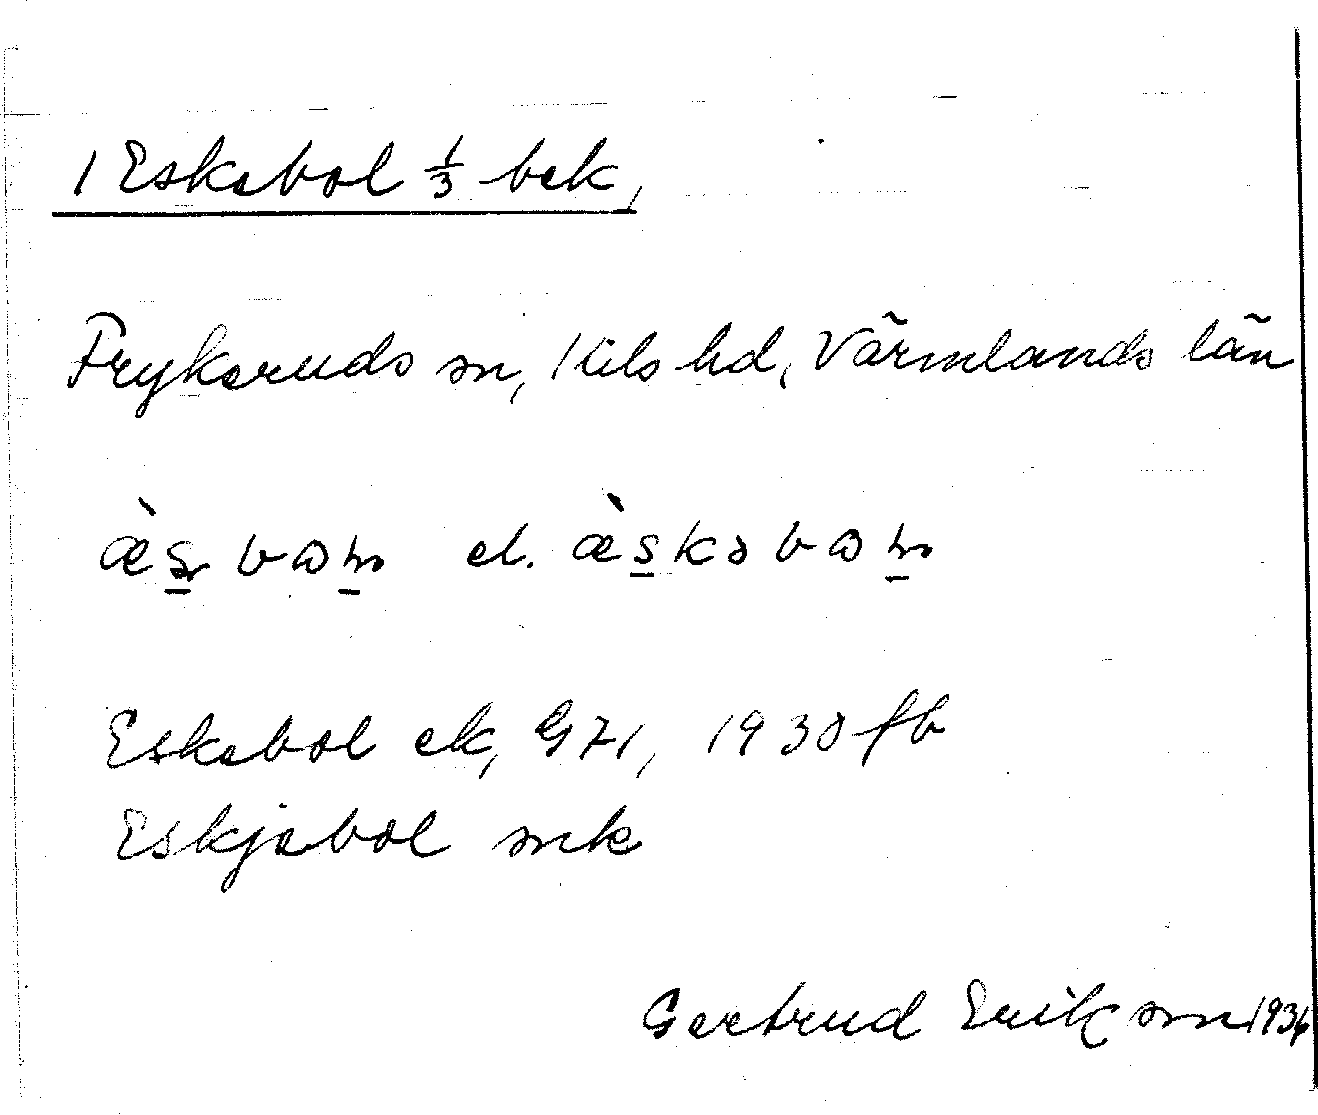 1 Eskebol 1/3 bek,
Frykeruds sn, Kils hd, Värmlands län
el.
Eskebol ek, G71, 1930 fb
Eskjebol mk
Gertrud Erikson 1936